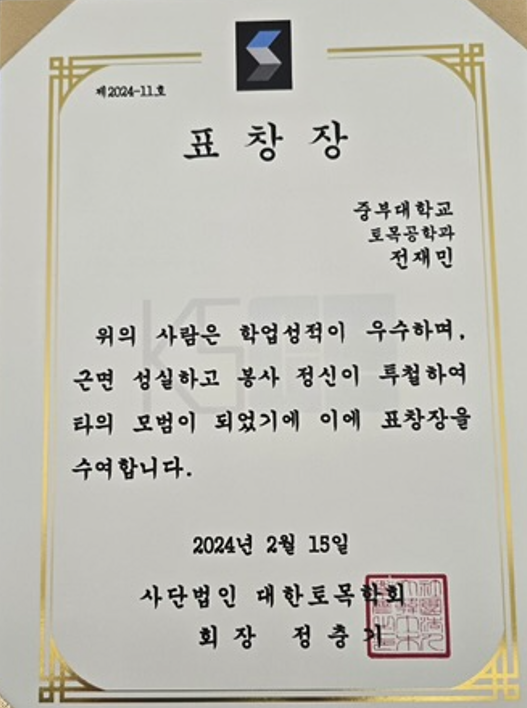 제2024-11호
표 창 장
중부대학교
토목공학과
전재민
위의 사람은 학업성적이 우수하며,
근면 성실하고 봉사 정신이 투철하여
타의 모범이 되었기에 이에 표창장을
수여합니다.
2024년 2월 15일
사단법인 대한토목학회
회 장 정 충 기